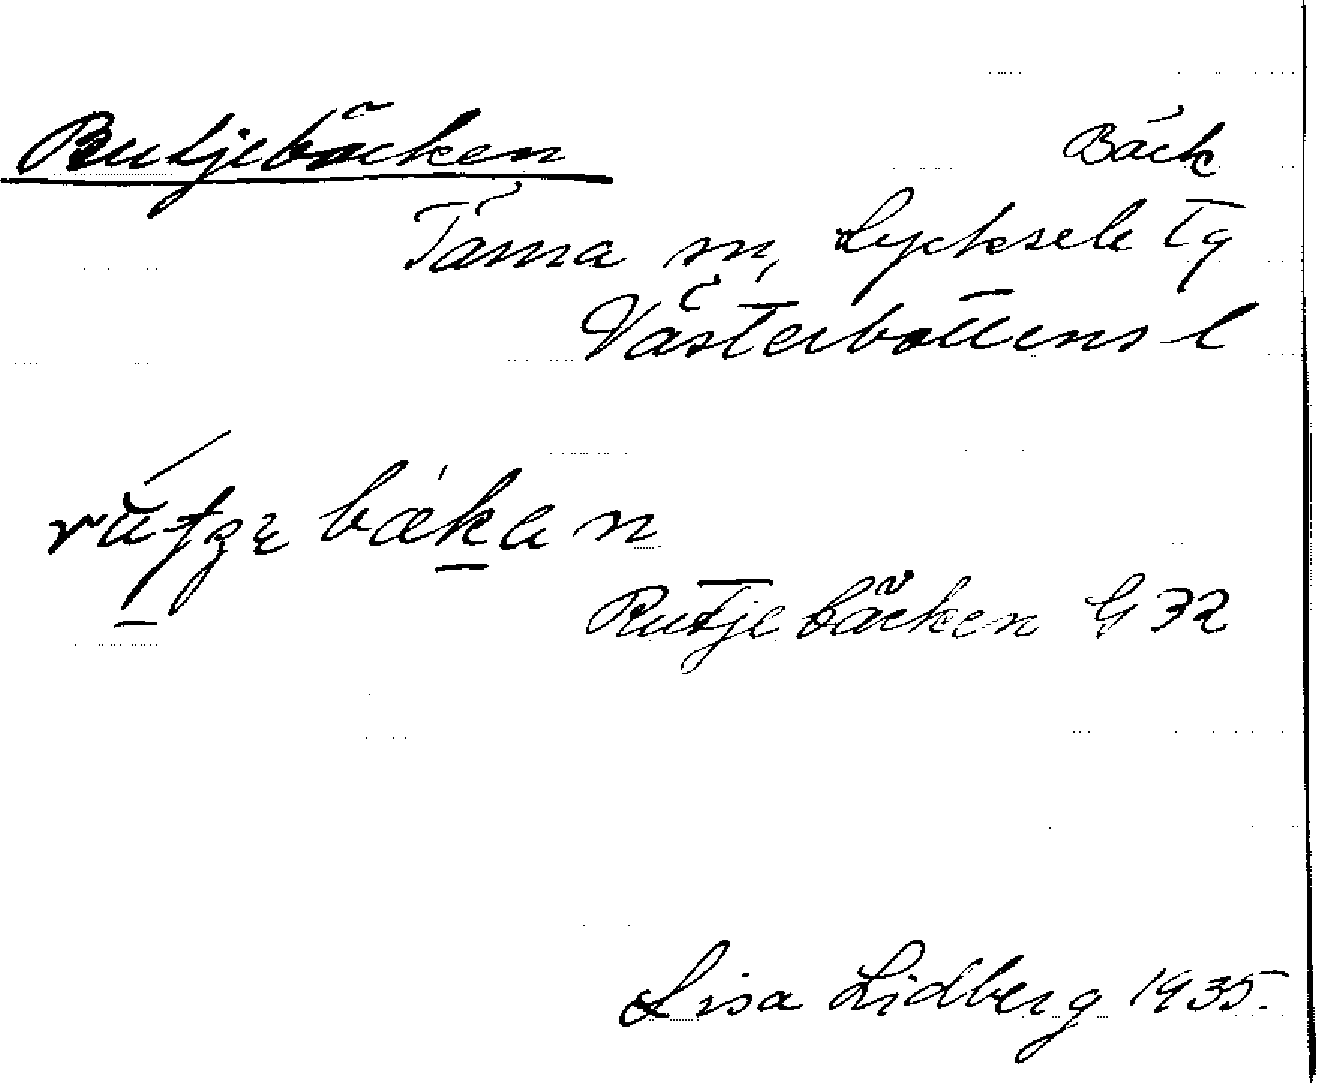 Rutjebäcken Bäck
Tärna sn, Lycksele Tg
Västerbottens l
Rutjebäcken G 32
Lisa Lidberg 1935.